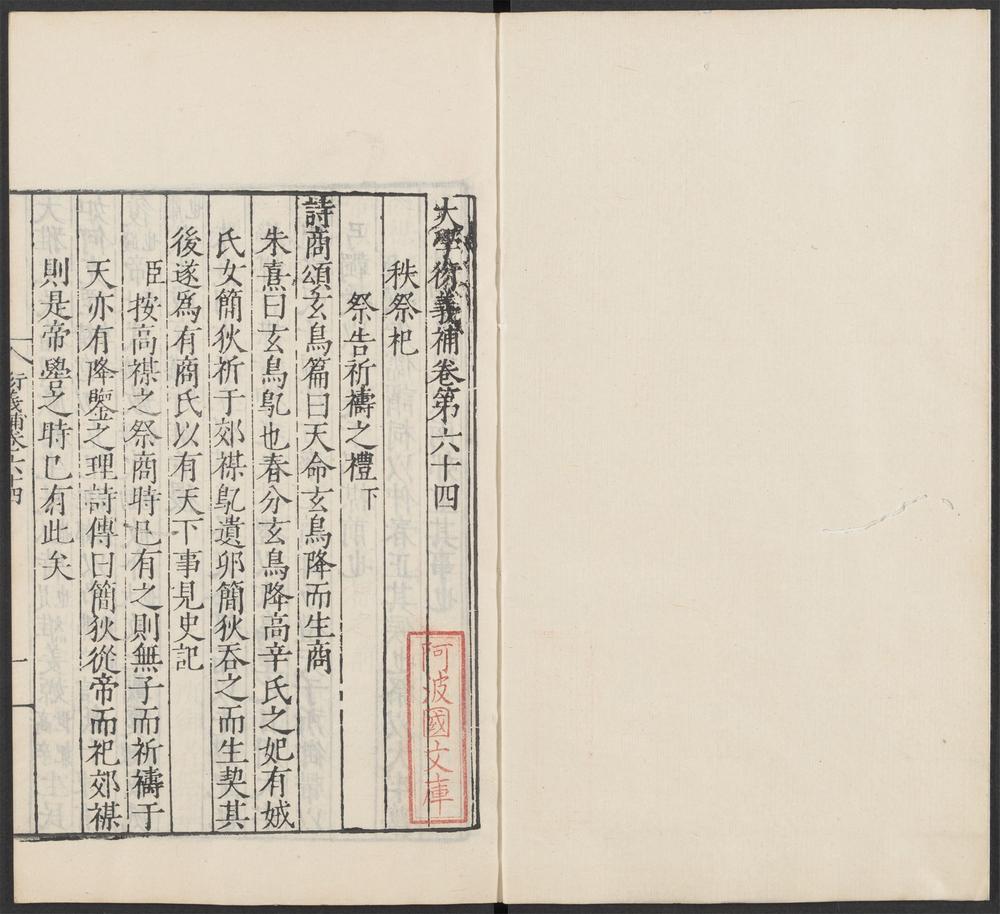 大學衍義補卷第六十四
秩祭祀
祭告祈禱之禮下
詩商頌玄鳥篇曰天命玄鳥降而生商
朱熹曰玄鳥鳦也春分玄鳥降高辛氏之妃有娀
氏女簡狄祈于郊禖鳦遺卵簡狄吞之而生契其
後遂爲有商氏以有天下事見史記
臣按高禖之祭商時已有之則無子而祈禱于
天亦有降鑒之理詩傳曰簡狄從帝而祀郊禖
則是帝嚳之時已有此矣
衍義補卷六十四
一
阿波國文庫